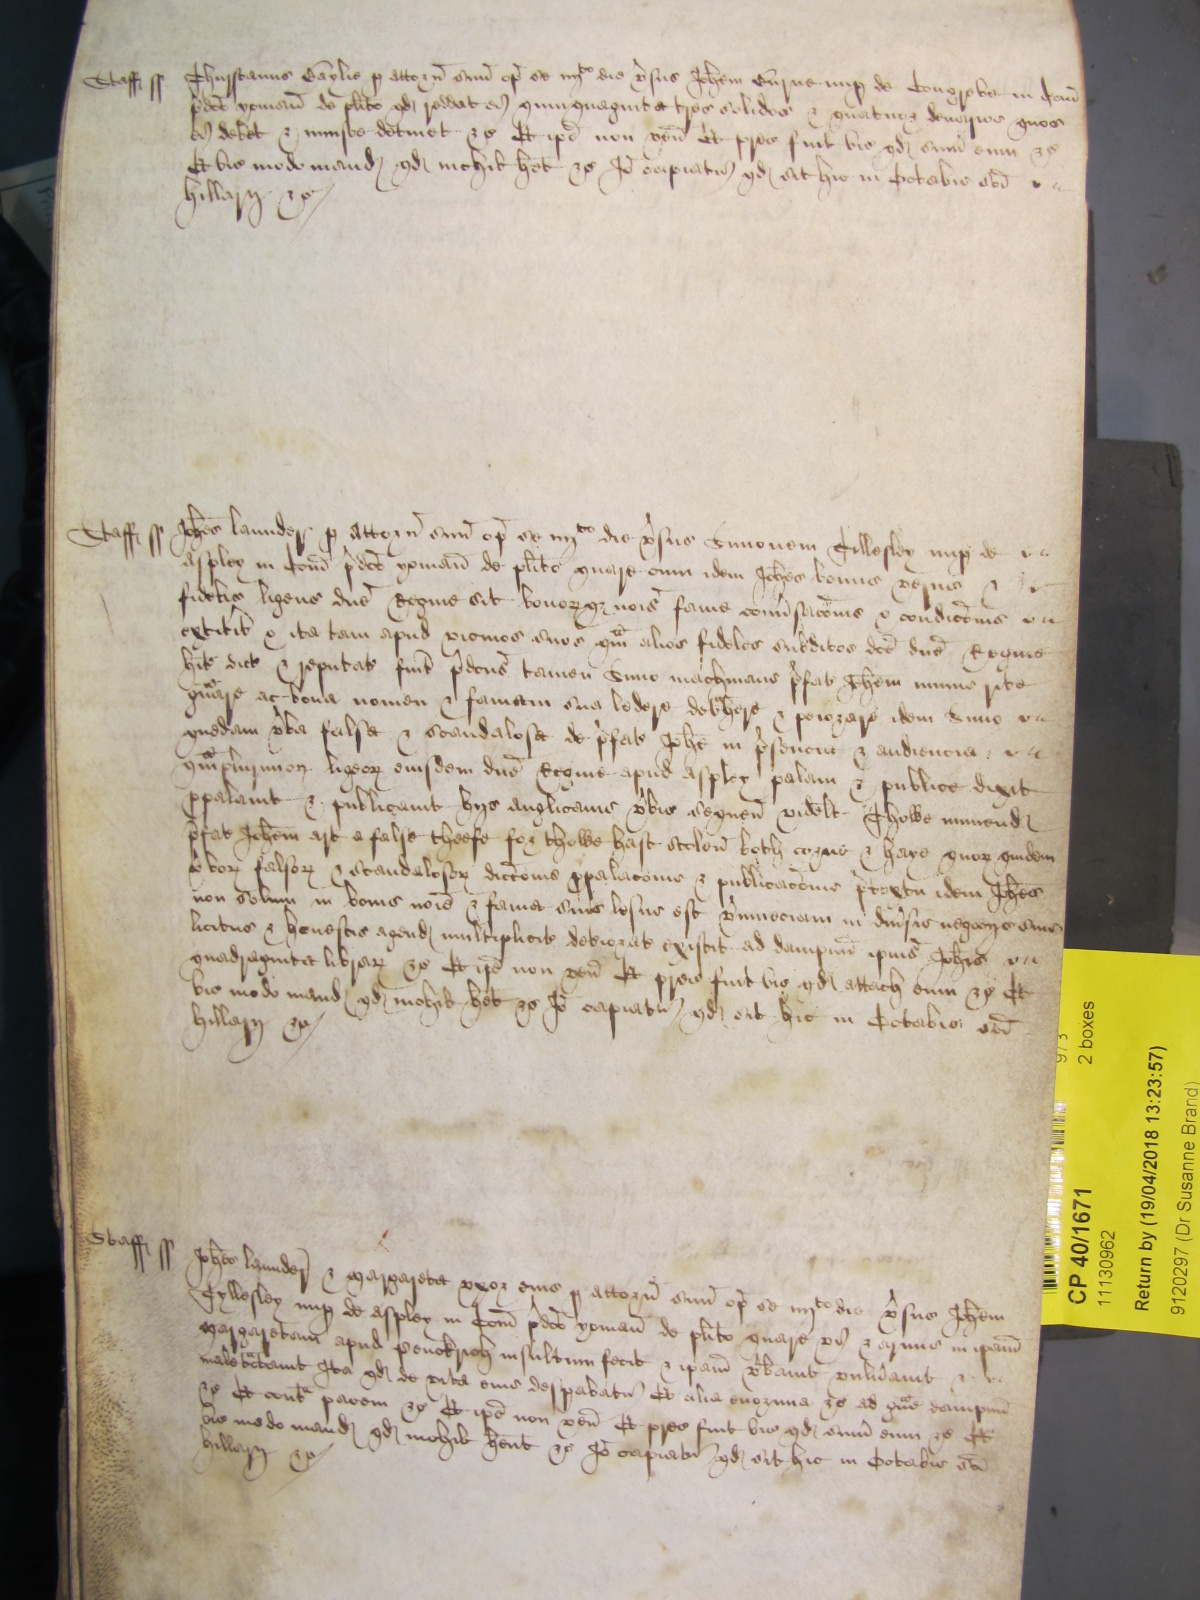 Staff ss Thurstanus Baylie p attorn suu op se iiijto die vsus Johem Byrne nup de Congreve in Com
pdco yoman de plito qd reddat ei quinquaginta tres solidos & quatuor denarios quos
ei debet & iniuste detinet &c Et ipe non ven Et prec fuit vic qd sum eum &c
Et vic modo mand qd nichil het &c Io capiatur qd sit hic in Octabis sci
hillarij &c
Staff ss Johes launder p attorn suu op se iiijto die vsus Simonem Tillesley nup de
Aspley in Com pdco yoman de plito quare cum idem Johes bonus verus &
fidelis ligeus dne Regine sit bonorqz nois fame conusacois & condicois
extitit & ita tam apud vicinos suos qm alios fideles subditos dce dne Regine
hit dict & reputat fuit pdcus tamen Simo machinans pfat Johem minus rite
guare ac bona nomen & famam sua ledere detrahere & peiorare idem Simo
quedam vba falsa & scandalosa de pfat Johe in psencia & audiencia
qmplurimor ligeor eiusdem dne Regine apud Aspley palam & publice dixit
ppalauit & publicauit hijs anglicanis vbis sequen videlt Thowe innuend
pfat Johem art a false theefe for thowe hast stolen both corne & haye quor quidem
vbor falsor & scandalosor diccois ppalacois & publicacois ptextu idem Johes
non solum in bonis noie & fama suis lesus est vnmeciam in diusis negocijs suis
licitis & honestis agend multiplicit deteriorat existit ad dampnu ipius Johis
quadraginta librar &c Et ipe non ven Et prec fuit vic qd attach eum &c Et
vic modo mand qd nichil het &c Io capiatur qd sit hic in Octabis sci
hillarij &c
Staff ss Johes launder & Margareta vxor eius p attorn suu op se iiijto die vsus Johem
Tyllesley nup de Aspley in Com pdco yoman de plito quare vi & armis in ipam
Margaretam apud Penckrich insultum fecit & ipam vbauit vulnauit &
maletctauit Ita qd de vita eius despabatur Et alia enormia &c ad gue dampnu
&c Et contra pacem &c Et ipe non ven Et prec fuit vic qd sum eum &c Et
vic modo mand qd nichil hent &c Io capiatur qd sit hic in Octabis sci
hillarij &c
973
2 boxes
CP 40/1671
11130962
Return by (19/04/2018 13:23:57)
9120297 (Dr Susanne Brand)